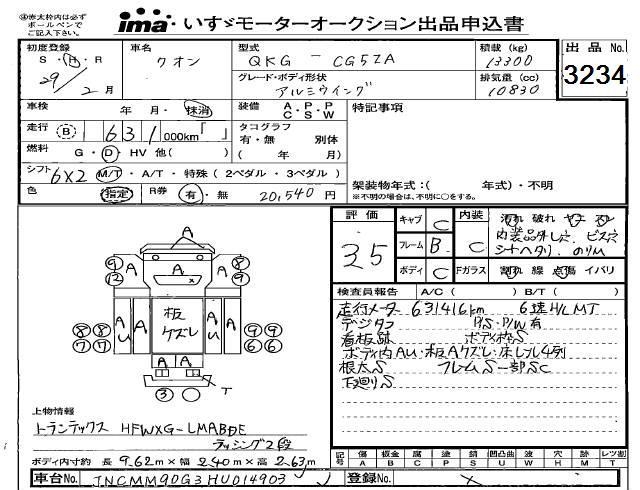 ※赤太枠内は必ずボールペンでご記入下さい。
ima いすゞモーターオークション出品申込書
初度登録 S・H・R 29/2月
車名 クオン
型式 QKG - CG5ZA
積載(kg) 13300
出品No. 3234
グレード・ボディ形状 アルミウイング
排気量(cc) 10830
車検 年 月・抹消
装備 A・P・P C・S・W
特記事項
走行 B 631,000km「 」
タコグラフ 有・無 別体 ( 年 月)
燃料 G・D・HV 他( )
シフト 6X2 M/T・A/T・特殊(2ペダル・3ペダル)
色 指定 R券 有・無 20,540円
架装物年式:( 年式)・不明
※不明の場合は、不明に○をする。
評価 3.5
キャブ C
内装 C
フレーム B
ボディ C
Fガラス
汚れ 破れ
内装品外し穴、ビス穴
シートヘタリ、のりム
割れ 線 点傷 イバリ
検査員報告 A/C( ) B/T( )
走行メーター 631416km 6速H/L MT
デジタコ P/S・P/W有
看板跡 ボディ枠S
ボディ内AU・板Aクズレ・床レール4列
根太S フレームS一部SC
下廻りS
A
A
A
9 12
8 9
8 8 7 7
A A U
板クズレ
A U A
9 9 6 6
A A
3
T
上物情報
トランテックス HFWXG-LMABDE
ラッシング2段
ボディ内寸約 長 9.62m×幅 2.40m×高 2.63m
記号 傷A 板金B 腐C 凹I 塗P 錆S 凹凸曲U 波W 穴H 跡M レツ割T
車台No. JNCMM90G3HU014903
登録No.